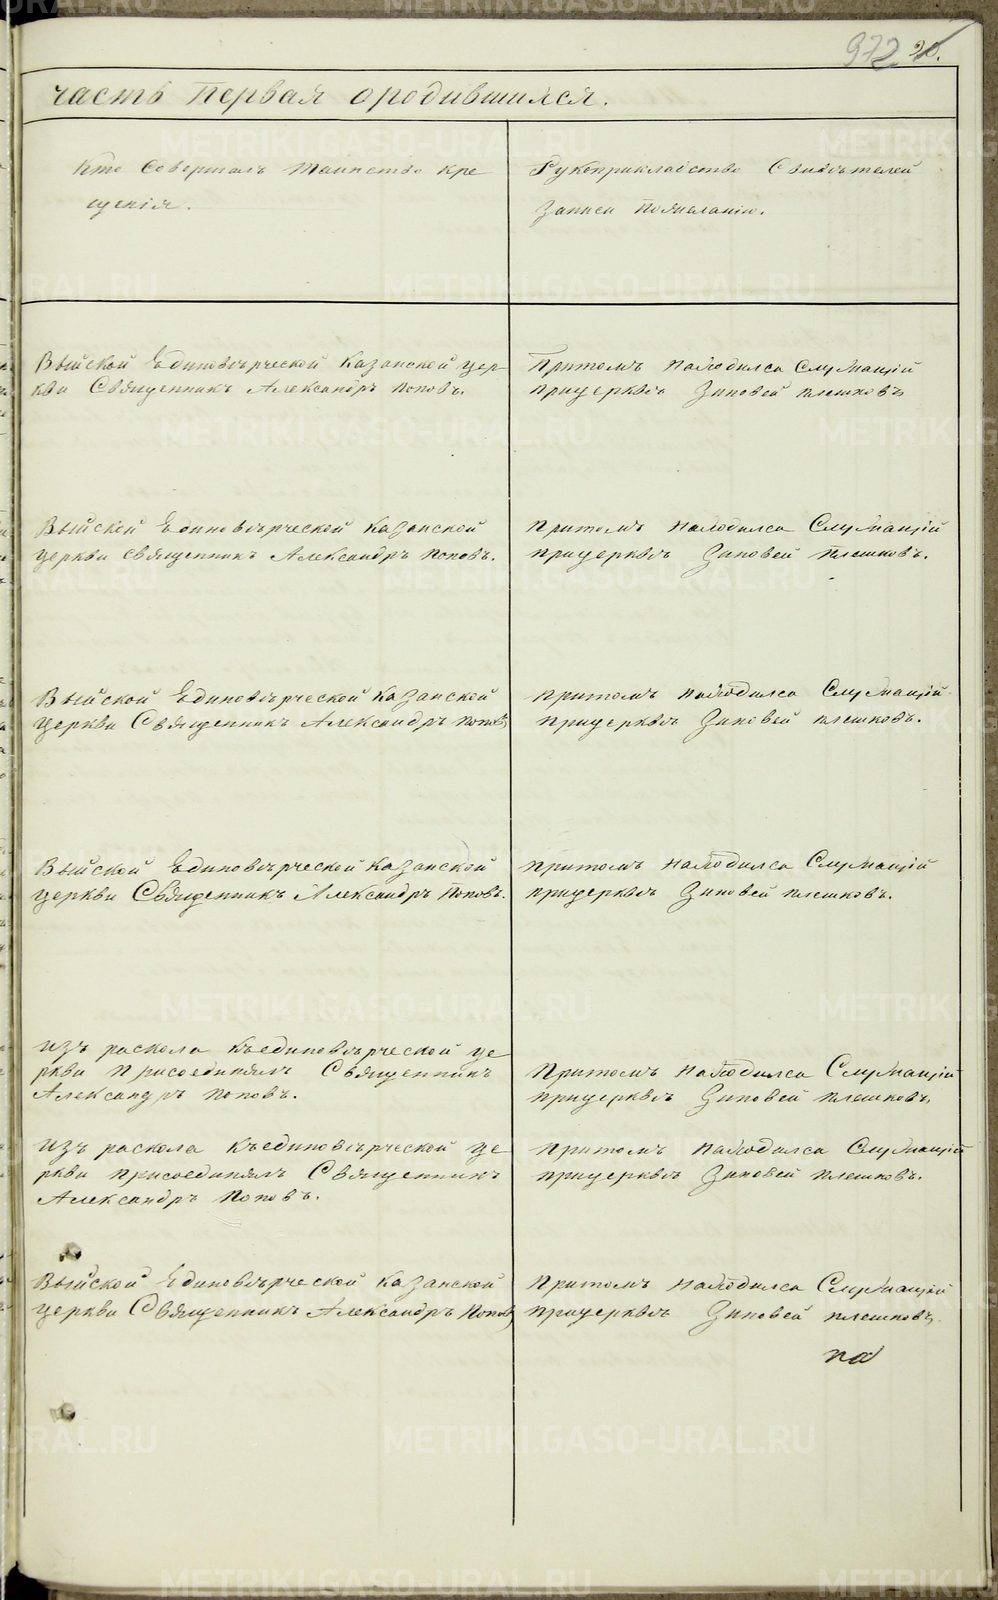 972 20.
часть первая о родившихся.
Кто совершалъ таинство кре
щенія.
Рукоприкладство Свидѣтелей
записи пожеланію.
Выйской Единовѣрческой Казанской цер-
кви Священникъ Александръ Поповъ.
Притомъ находился Служащій
прицерквѣ Зиновей Плешковъ
Выйской Единовѣрческой Казанской
церкви священникъ Александръ Поповъ.
Притомъ находился Служащій
прицерквѣ Зиновей Плешковъ.
Выйской Единовѣрческой Казанской
церкви Священникъ Александръ Поповъ
притомъ находился Служащій
прицерквѣ Зиновей плешковъ.
Выйской Единовѣрческой Казанской
церкви Священникъ Александръ Поповъ.
притомъ находился Служащій
прицерквѣ Зиновей плешковъ.
изъ раскола Къединовѣрческой це
ркви Присоединялъ Священникъ
Александръ Поповъ.
Притомъ находился Служащій
прицерквѣ Зиновей Плешковъ
изъ раскола Къединовѣрческой це
ркви присоединялъ Священникъ
Александръ Поповъ.
притомъ находился Служащій
прицерквѣ Зиновей Плешковъ.
Выйской Единовѣрческой Казанской
церкви Священникъ Александръ Поповъ
притомъ находился Служащій
прицерквѣ Зиновей плешковъ.
METRIKI.GASO-URAL.RU